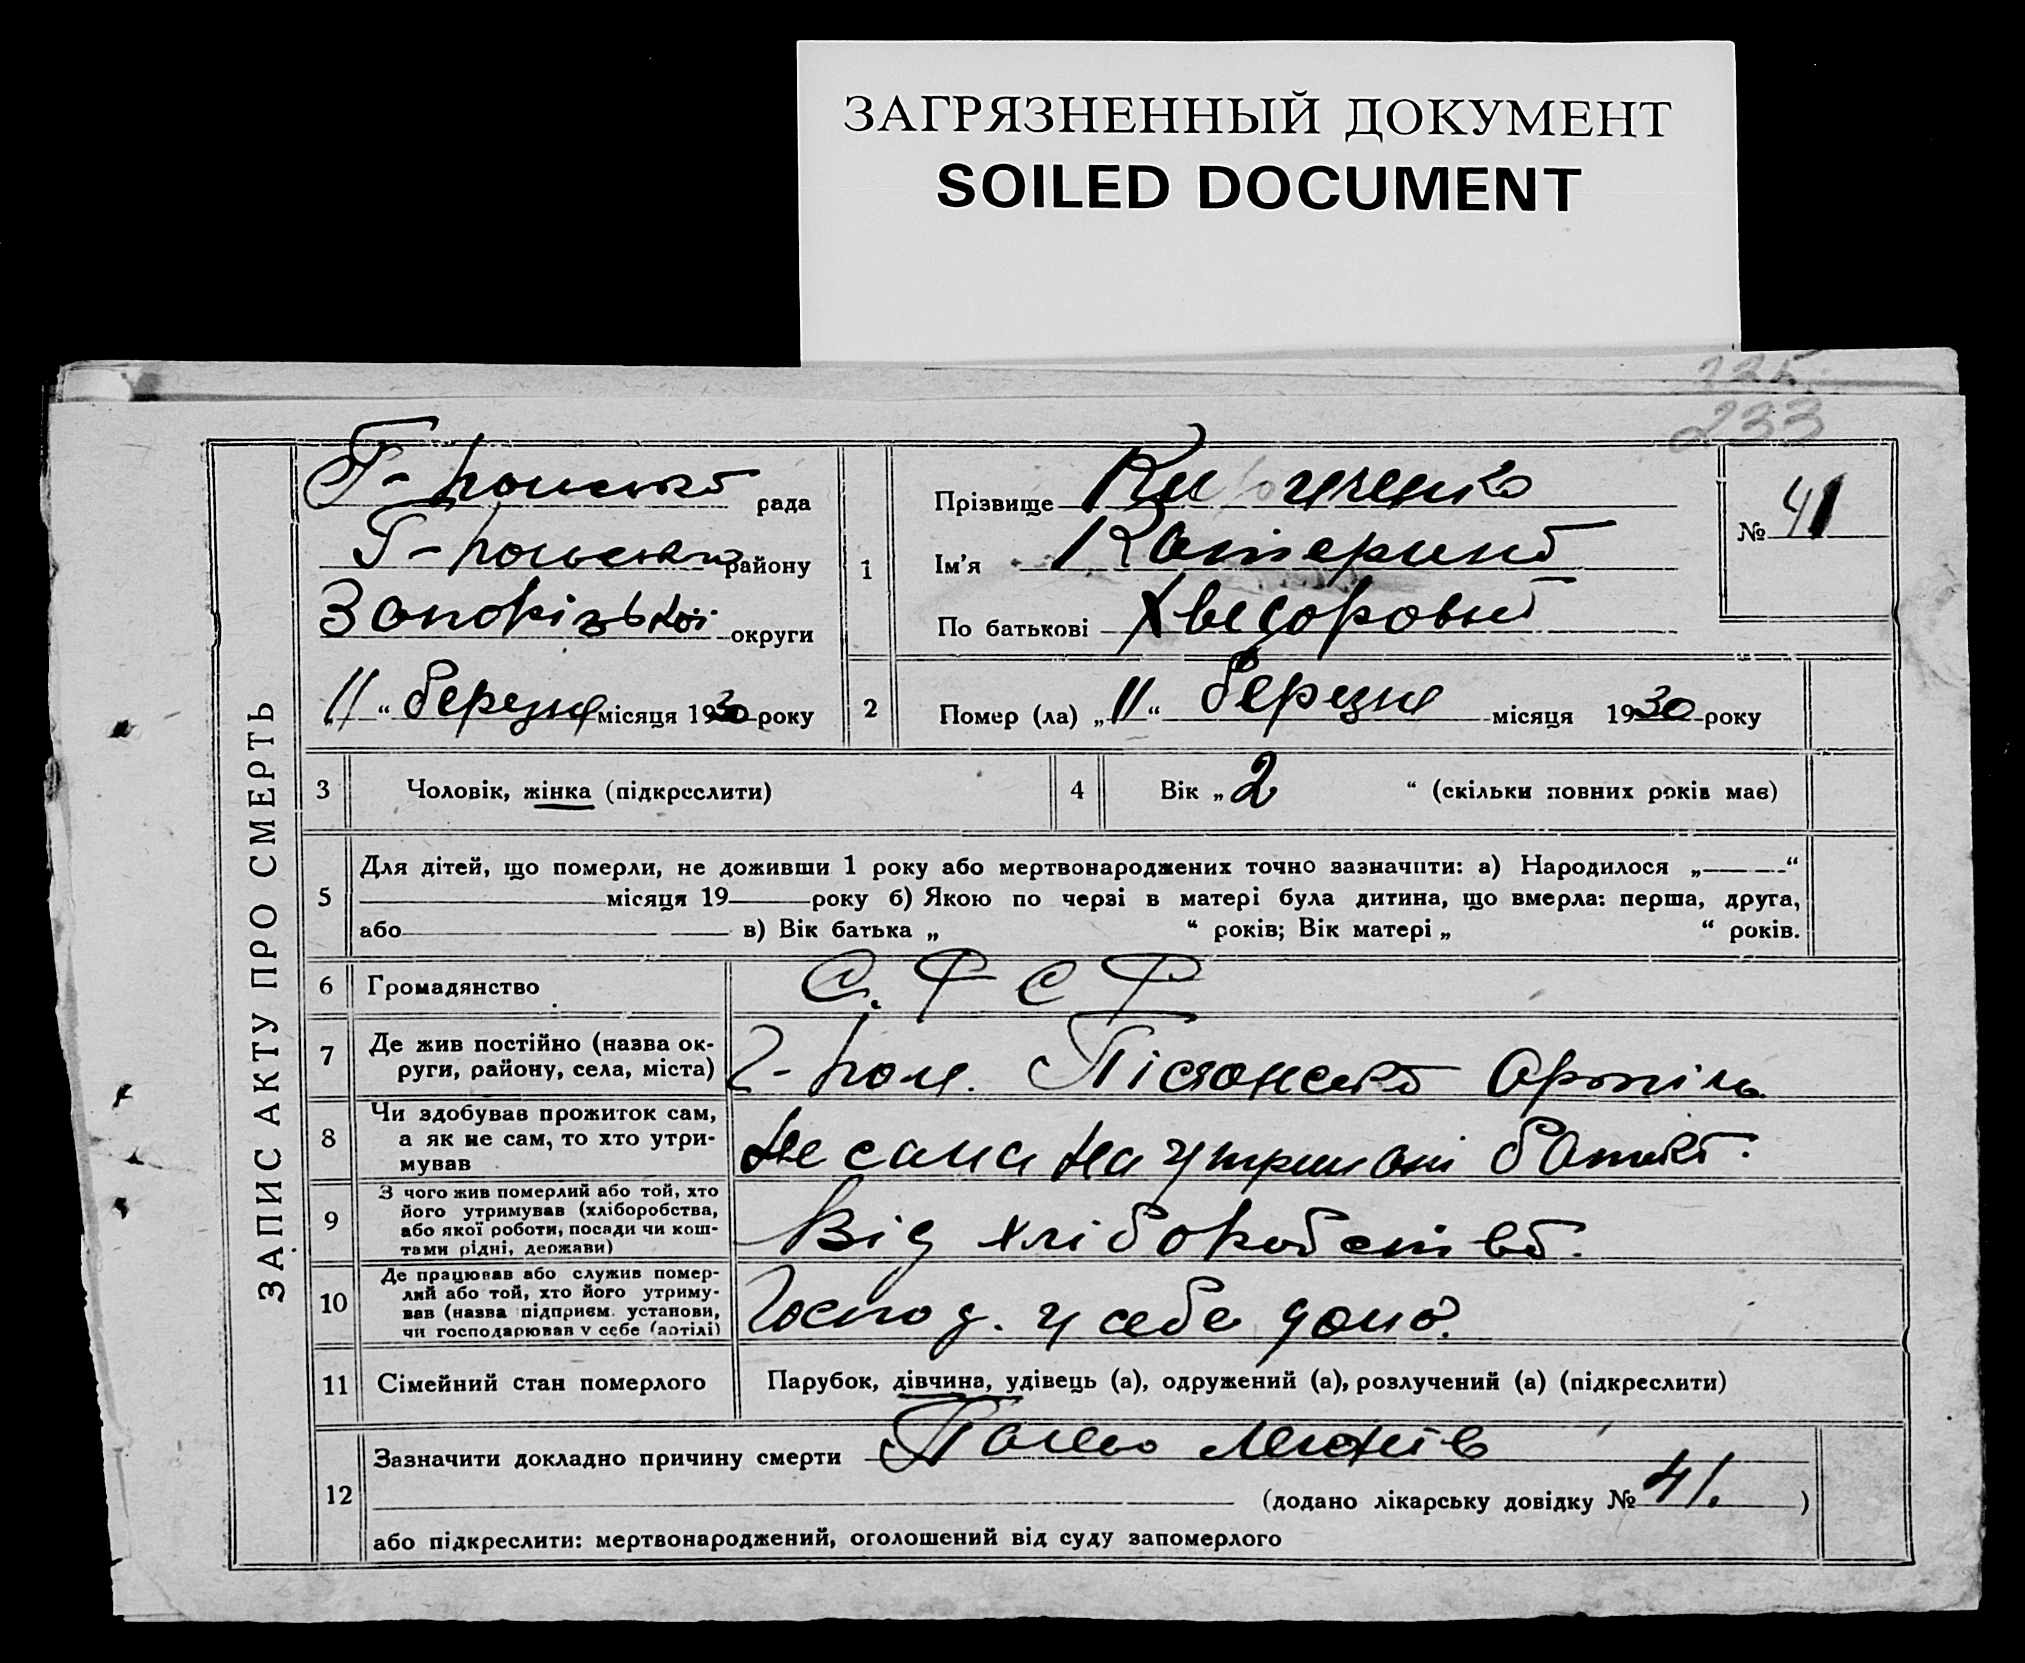 ЗАГРЯЗНЕННЫЙ ДОКУМЕНТ
SOILED DOCUMENT
233
ЗАПИС АКТУ ПРО СМЕРТЬ
Г-польська рада
Г-польськ району
Запорізької округи
„11“ березня місяця 1930 року
1
Прізвище
Ім'я Катерина
По батькові Хведоровна
№ 41
2
Помер (ла) „11“ березня місяця 1930 року
3
Чоловік, жінка (підкреслити)
4
Вік „2“ (скільки повних років має)
5
Для дітей, що померли, не доживши 1 року або мертвонароджених точно зазначити: а) Народилося „ “
місяця 19 року б) Якою по черзі в матері була дитина, що вмерла: перша, друга,
або в) Вік батька „ “ років; Вік матері „ “ років.
6
Громадянство
С.Ф С Ф
7
Де жив постійно (назва ок-
руги, району, села, міста)
Г-пол. Артіль
8
Чи здобував прожиток сам,
а як не сам, то хто утри-
мував
Не сама на утримані батька.
9
З чого жив померлий або той, хто
його утримував (хліборобства,
або якої роботи, посади чи кош-
тами рідні, держави)
Від хліборобства.
10
Де працював або служив помер-
лий або той, хто його утриму-
вав (назва підприєм. установи,
чи господарював у себе (артілі)
Господ. у себе дома.
11
Сімейний стан померлого
Парубок, дівчина, удівець (а), одружений (а), розлучений (а) (підкреслити)
12
Зазначити докладно причину смерти
(додано лікарську довідку № 41. )
або підкреслити: мертвонароджений, оголошений від суду запомерлого